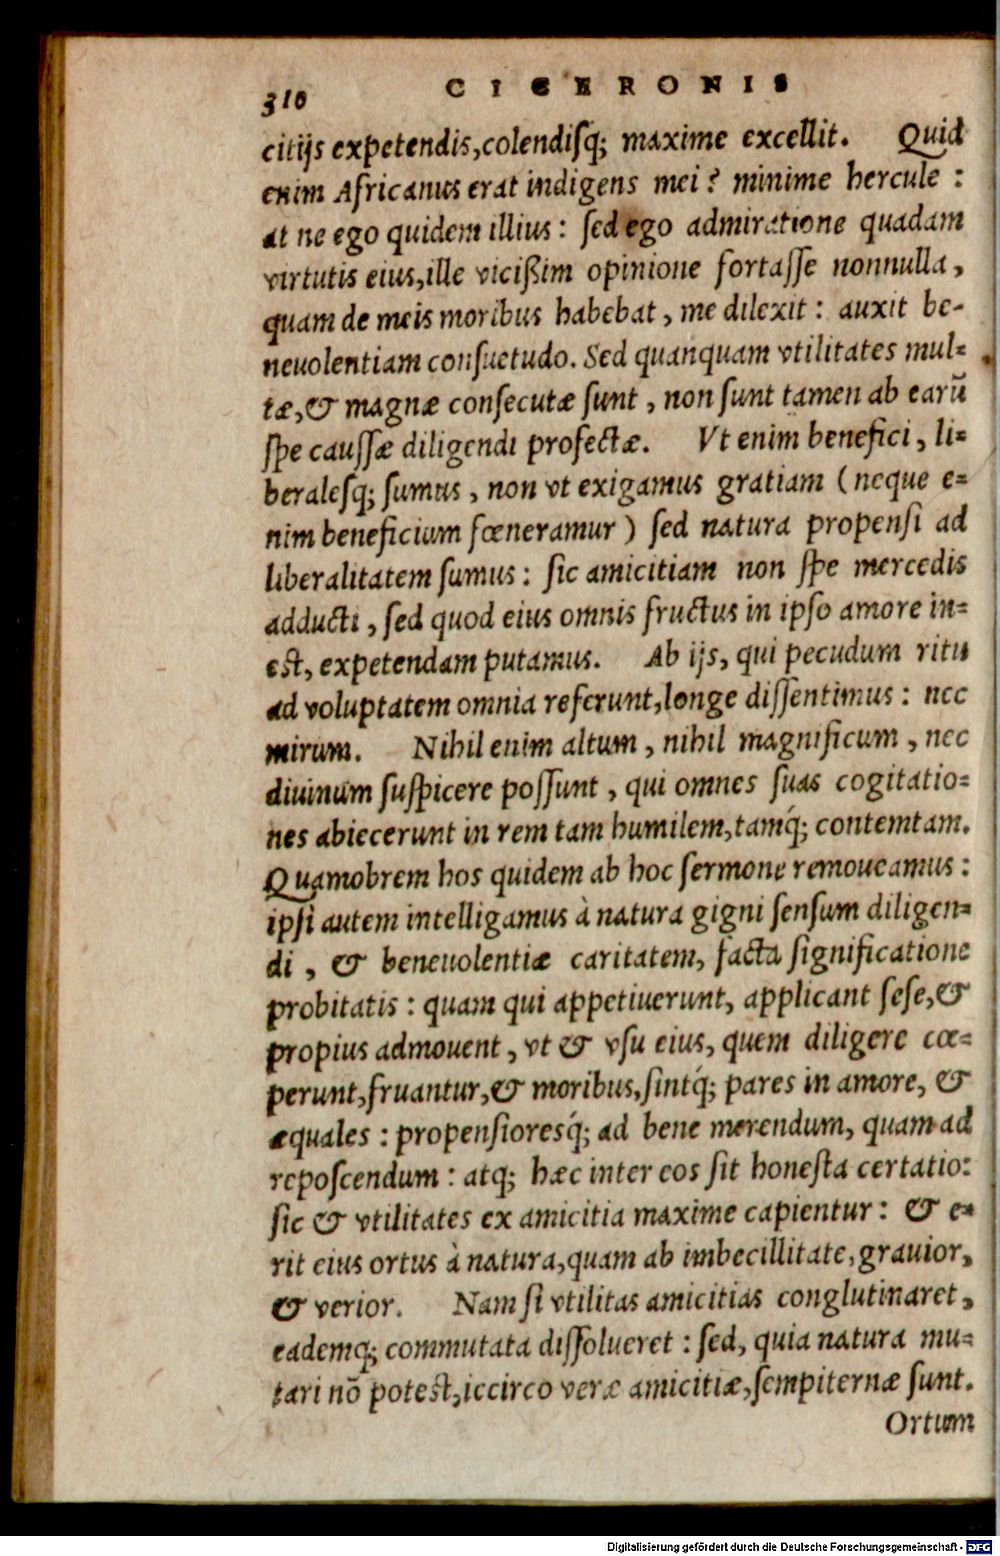 310 CICERONIS
citijs expetendis, colendisq́; maxime excellit. Quid
enim Africanus erat indigens mei? minime hercule:
at ne ego quidem illius: sed ego admiratione quadam
virtutis eius, ille vicißim opinione fortasse nonnulla,
quam de meis moribus habebat, me dilexit: auxit be-
neuolentiam consuetudo. Sed quanquam vtilitates mul-
tæ, & magnæ consecutæ sunt, non sunt tamen ab earū
spe caussæ diligendi profectæ. Vt enim benefici, li-
beralesq́; sumus, non vt exigamus gratiam (neque e-
nim beneficium fœneramur) sed natura propensi ad
liberalitatem sumus: sic amicitiam non spe mercedis
adducti, sed quod eius omnis fructus in ipso amore in-
est, expetendam putamus. Ab ijs, qui pecudum ritu
ad voluptatem omnia referunt, longe dissentimus: nec
mirum. Nihil enim altum, nihil magnificum, nec
diuinum suspicere possunt, qui omnes suas cogitatio-
nes abiecerunt in rem tam humilem, tamq́; contemtam.
Quamobrem hos quidem ab hoc sermone remoueamus:
ipsi autem intelligamus à natura gigni sensum diligen-
di, & beneuolentiæ caritatem, facta significatione
probitatis: quam qui appetiuerunt, applicant sese, &
propius admouent, vt & vsu eius, quem diligere cœ-
perunt, fruantur, & moribus, sintq́; pares in amore, &
æquales: propensioresq́; ad bene merendum, quam ad
reposcendum: atq; hæc inter eos sit honesta certatio:
sic & vtilitates ex amicitia maxime capientur: & e-
rit eius ortus à natura, quam ab imbecillitate, grauior,
& verior. Nam si vtilitas amicitias conglutinaret,
eademq́; commutata dissolueret: sed, quia natura mu-
tari nō potest, iccirco veræ amicitiæ, sempiternæ sunt.
Ortum
Digitalisierung gefördert durch die Deutsche Forschungsgemeinschaft - DFG